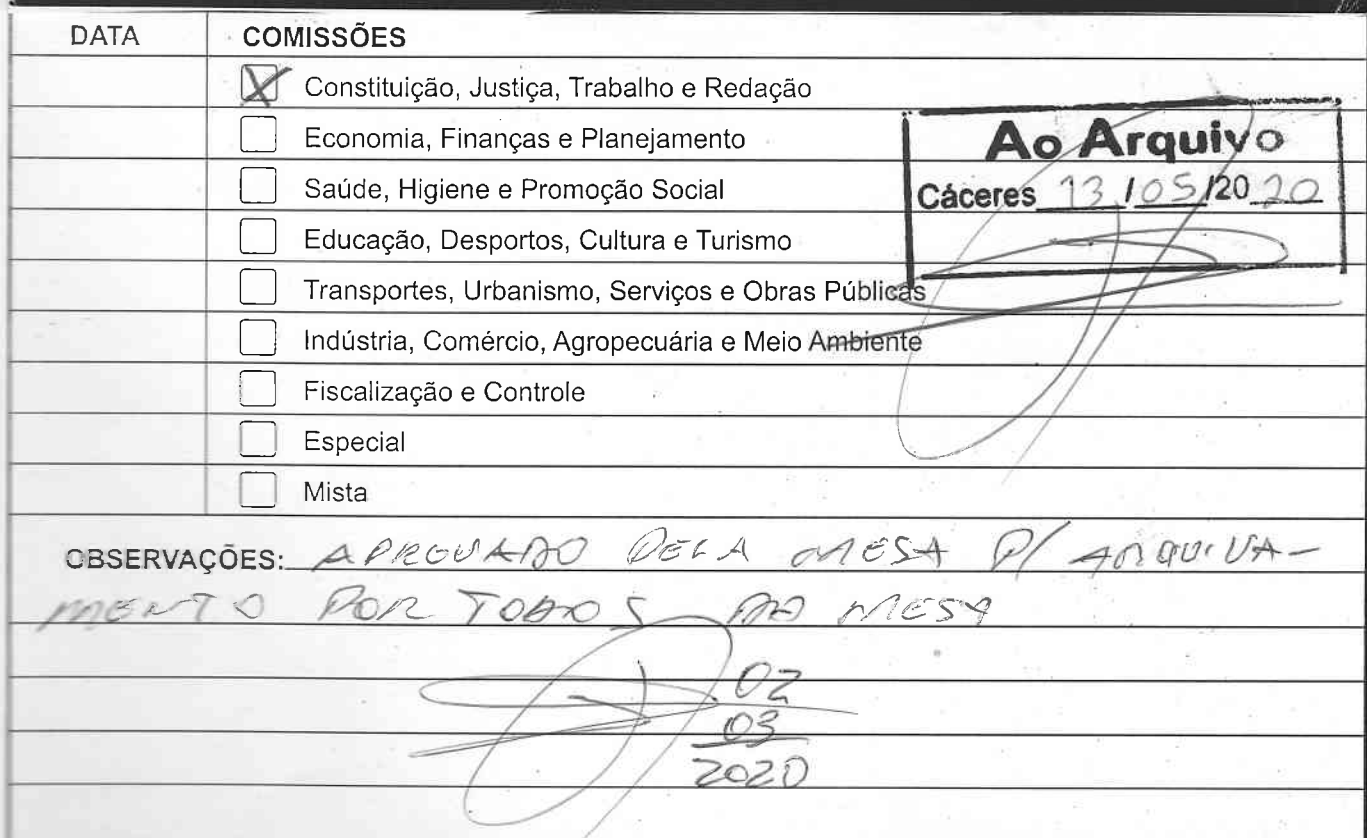 DATA COMISSÕES
Constituição, Justiça, Trabalho e Redação
Economia, Finanças e Planejamento
Saúde, Higiene e Promoção Social
Educação, Desportos, Cultura e Turismo
Transportes, Urbanismo, Serviços e Obras Públicas
Indústria, Comércio, Agropecuária e Meio Ambiente
Fiscalização e Controle
Especial
Mista
Ao Arquivo
Cáceres 13/05/2020
OBSERVAÇÕES: APROVADO PELA MESA P/ ARQUIVA-
MENTO POR TODOS DA MESA
02
03
2020